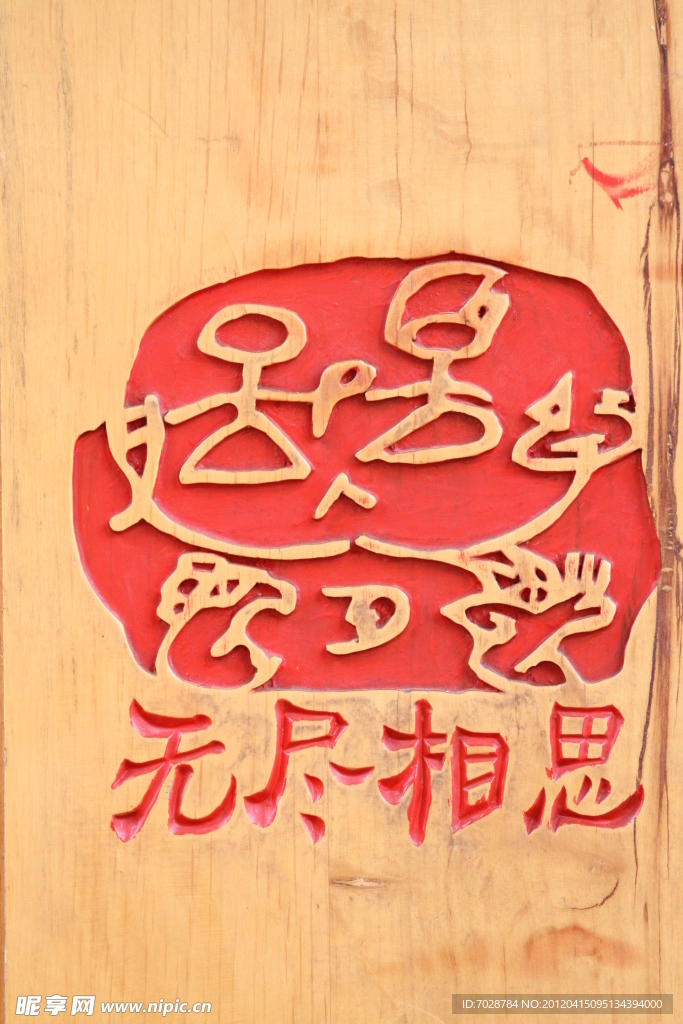 无尽相思
昵享网 www.nipic.cn
ID:7028784 NO:20120415095134394000